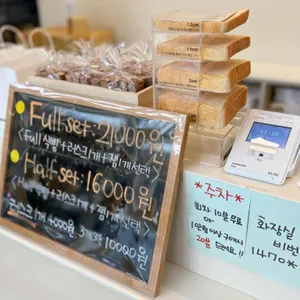 1.2cm
1.5cm
2cm
Full set: 21000원
<Full 식빵+러스크1개+잼1개선택>
Half set: 16000원
+러스크1개+잼1개선택>
러스크 1개 4000원, 3개 10000원
*주차*
회차 10분 무료
or
1만원 이상 구매시
20분 드려요!!
화장실
비번
1470*